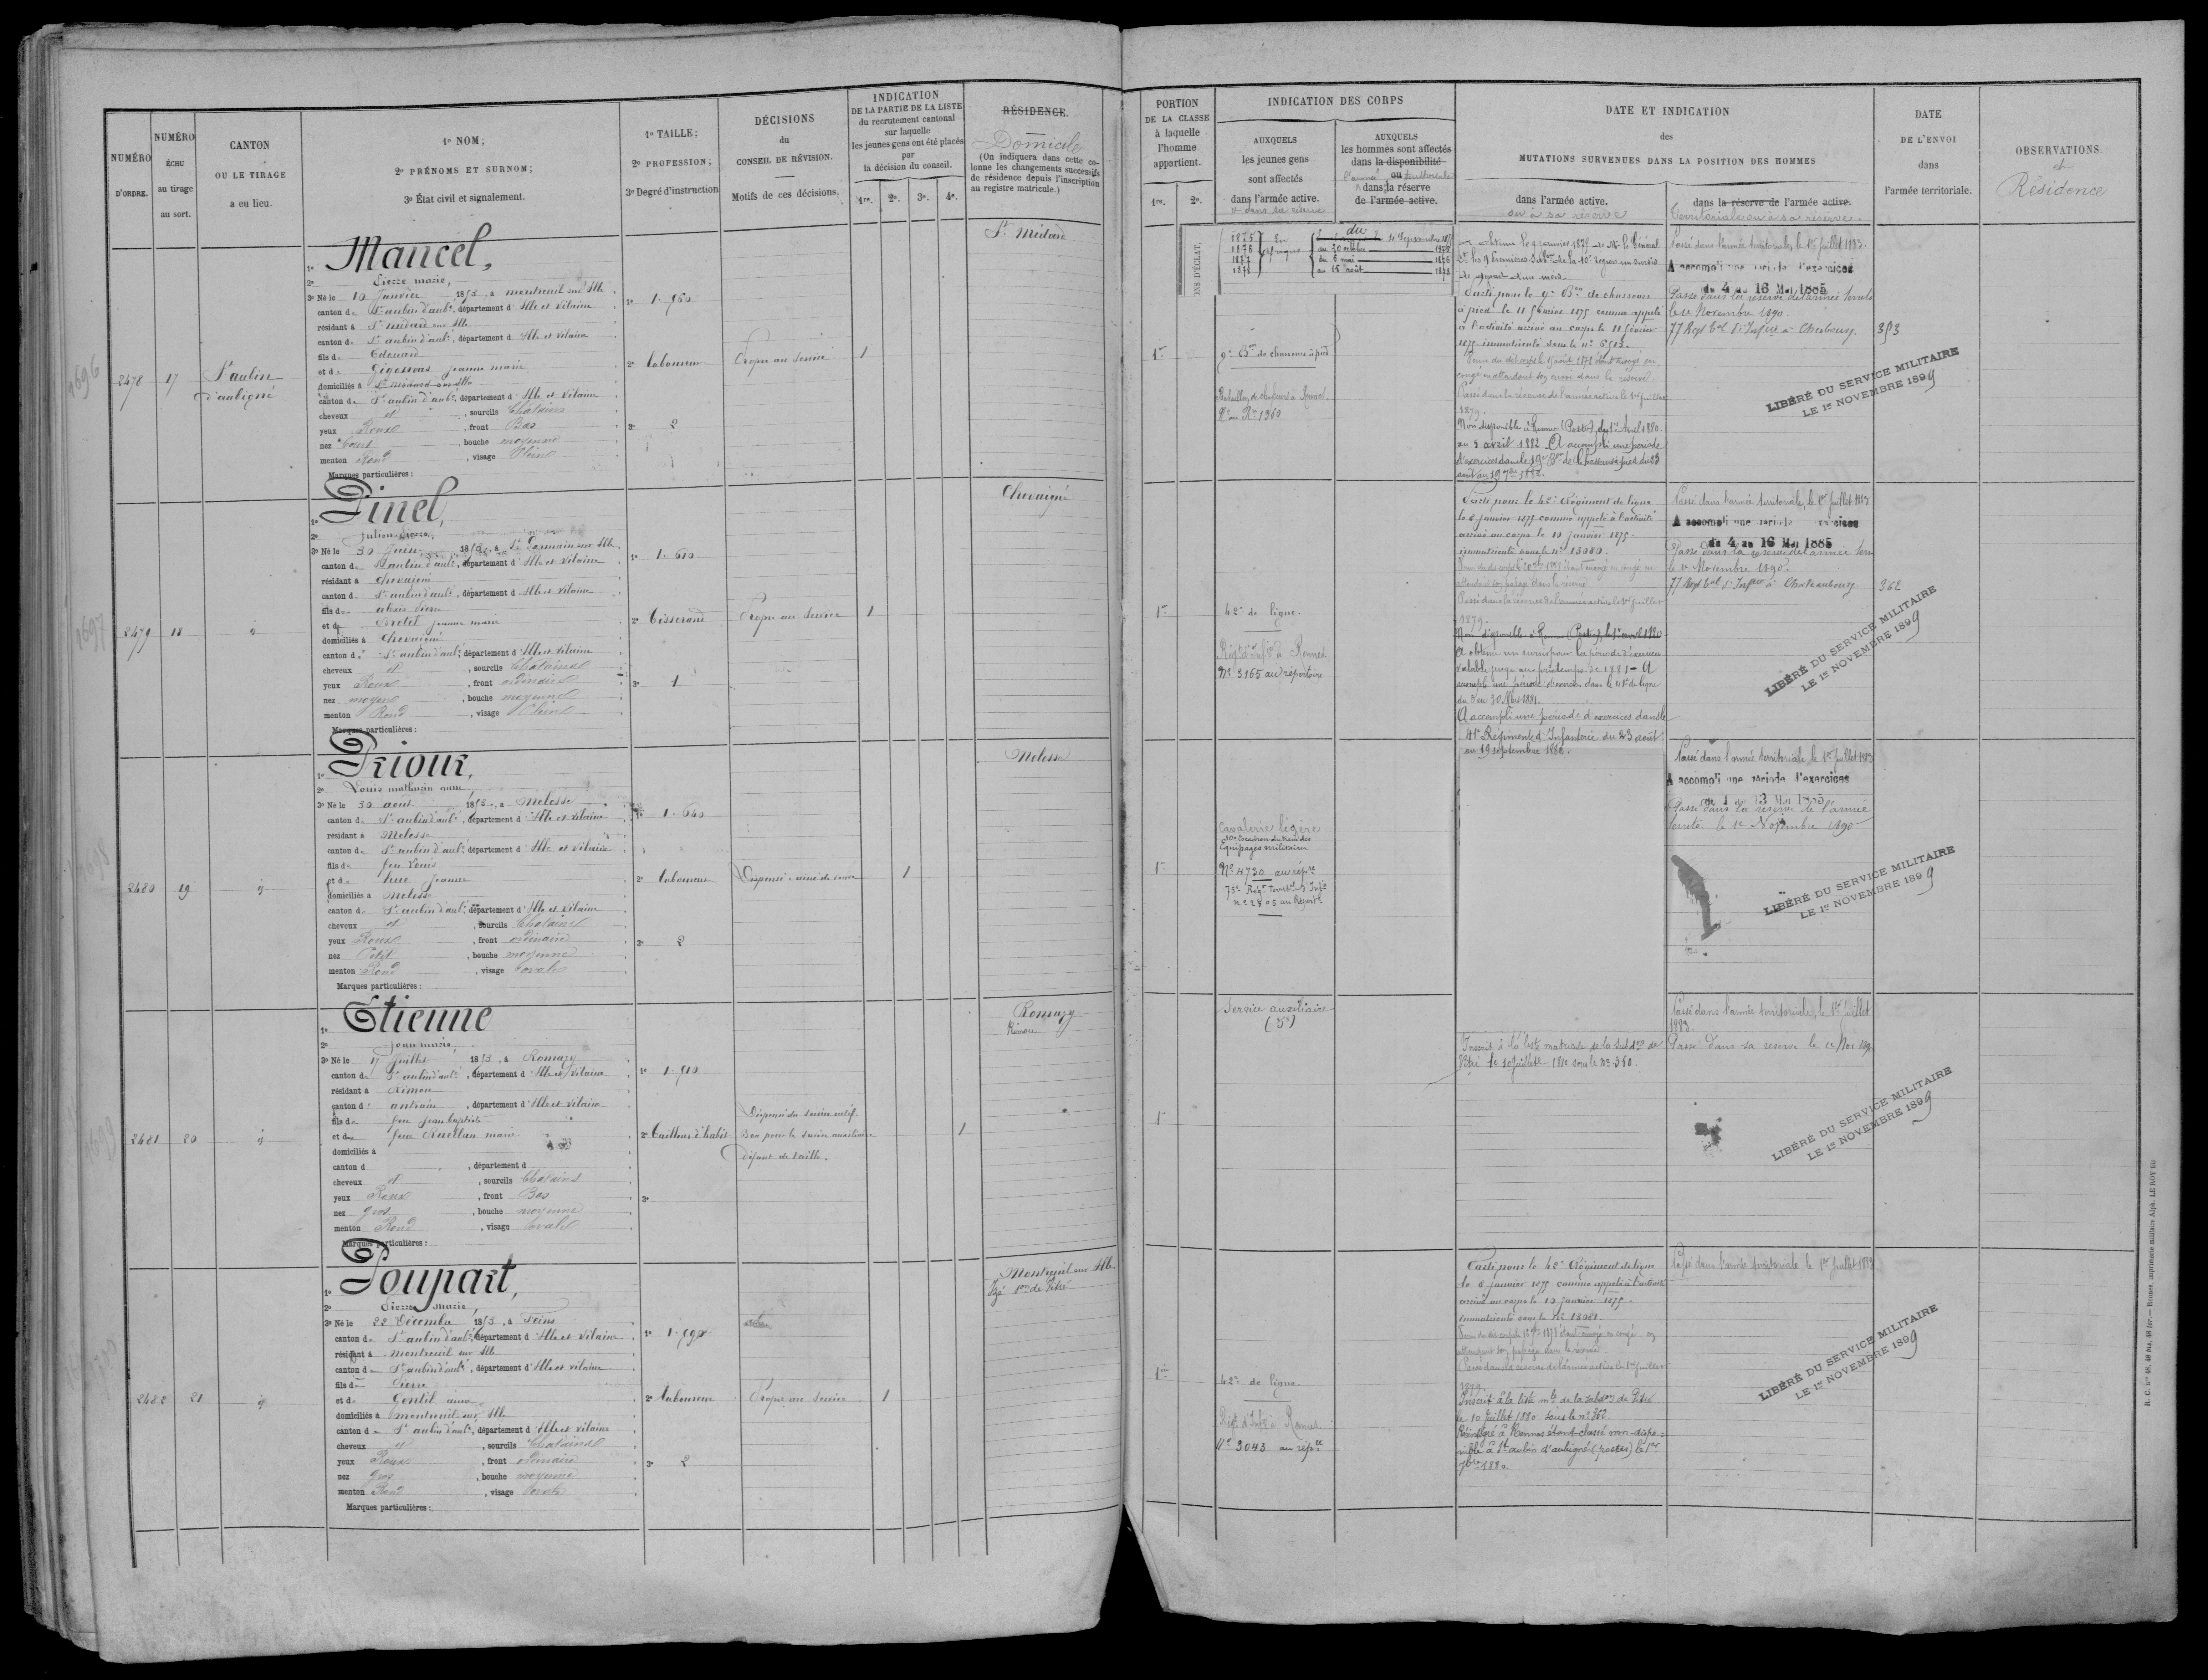 NUMÉRO
D'ORDRE.
NUMÉRO
ÉCHU
au tirage
au sort.
CANTON
OU LE TIRAGE
a eu lieu.
1º NOM;
2º PRÉNOMS ET SURNOM;
3º État civil et signalement.
1º TAILLE;
2º PROFESSION;
3º Degré d'instruction
DÉCISIONS
du
CONSEIL DE RÉVISION.
Motifs de ces décisions.
INDICATION
DE LA PARTIE DE LA LISTE
du recrutement cantonal
sur laquelle
les jeunes gens ont été placés
par
la décision du conseil.
1re. 2e. 3e. 4e.
RÉSIDENCE.
Domicile
(On indiquera dans cette co-
lonne les changements successifs
de résidence depuis l'inscription
au registre matricule.)
1696
2478
17
St aubin
d'aubigné
1º Mancel,
2º Pierre marie,
3º Né le 10 Janvier 1853, à montreuil sur Ille
canton de St aubin d'aubé, département d'Ille et Vilaine
résidant à St médard sur Ille
canton de St aubin d'aubé, département d'Ille et Vilaine
fils de Edouard
et de jeanne marie
domiciliés à St médard sur Ille
canton de St aubin d'aubé, département d'Ille et Vilaine
cheveux et, sourcils Chatains
yeux Roux, front Bas
nez, bouche moyenne
menton Rond, visage Plein
Marques particulières:
1º 1.760
2º laboureur
3º 2
Propre au Service
1
St Médard
1697
2479
18
1º Pinel,
2º Julien Pierre,
3º Né le 30 Juin 1853, à St Germain sur Ille
canton de St aubin d'aubé, département d'Ille et Vilaine
résidant à Chevaigné
canton de St aubin d'aubé, département d'Ille et Vilaine
fils de
et de jeanne marie
domiciliés à Chevaigné
canton de St aubin d'aubé, département d'Ille et Vilaine
cheveux et, sourcils Chatains
yeux Roux, front ordinaire
nez moyen, bouche moyenne
menton Rond, visage Plein
Marques particulières:
1º 1.610
2º Tisserand
3º 1
Propre au Service
1
Chevaigné
1698
2480
19
1º Priour,
2º Louis mathurin
3º Né le 30 août 1853, à Melesse
canton de St aubin d'aubé, département d'Ille et Vilaine
résidant à Melesse
canton de St aubin d'aubé, département d'Ille et Vilaine
fils de feu Louis
et de Jeanne
domiciliés à Melesse
canton de St aubin d'aubé, département d'Ille et Vilaine
cheveux et, sourcils Chatains
yeux Roux, front ordinaire
nez Petit, bouche moyenne
menton Rond, visage ovale
Marques particulières:
1º 1.640
2º laboureur
3º 2
Dispensé. ainé de veuve
1
Melesse
1699
2481
20
1º Etienne
2º Jean marie
3º Né le 17 Juillet 1853, à Romazy
canton de St aubin d'aubé, département d'Ille et Vilaine
résidant à Rimou
canton d' antrain, département d'Ille et Vilaine
fils de feu Jean baptiste
et de feue Ruellan marie
domiciliés à
canton d , département d
cheveux et, sourcils Chatains
yeux Roux, front Bas
nez gros, bouche moyenne
menton Rond, visage ovale
Marques particulières:
1º 1.510
2º Tailleur d'habits
3º
Dispensé du service actif.
Bon pour le service auxiliaire
défaut de taille.
1
Romazy
Rimou
2482
21
1º Poupart,
2º Pierre Marie,
3º Né le 22 Décembre 1853, à Feins
canton de St aubin d'aubé, département d'Ille et Vilaine
résidant à montreuil sur Ille
canton de St aubin d'aubé, département d'Ille et Vilaine
fils de Pierre
et de Gentil anna
domiciliés à montreuil sur Ille
canton de St aubin d'aubé, département d'Ille et Vilaine
cheveux et, sourcils Chatains
yeux Roux, front ordinaire
nez gros, bouche moyenne
menton Rond, visage ovale
Marques particulières:
1º 1.590
2º laboureur
3º 2
Propre au Service
1
Montreuil sur Ille
PORTION
DE LA CLASSE
à laquelle
l'homme
appartient.
1re. 2e.
INDICATION DES CORPS
AUXQUELS
les jeunes gens
sont affectés
dans l'armée active.
et dans sa réserve
AUXQUELS
les hommes sont affectés
dans la disponibilité
ou
l'armée territoriale
dans la réserve
de l'armée active.
DATE ET INDICATION
des
MUTATIONS SURVENUES DANS LA POSITION DES HOMMES
dans l'armée active.
ou à sa réserve
dans la réserve de l'armée active.
territoriale ou à sa réserve.
DATE
DE L'ENVOI
dans
l'armée territoriale.
OBSERVATIONS.
et
Résidence
ONS D'ÉCLAT,
1875
1876
1877
1878
En
du
au 20 octobre
du 6 mai
au 15 août
1re
9e Bon de chasseurs à pied
Bataillon de chasseurs à Rennes
No au Rre 1360
Parti pour le 9e Bon de chasseurs
à pied le 11 février 1875 comme appelé
à l'activité arrivé au corps le 11 février
1875 immatriculé sous le no 6513.
congé en attendant son envoi dans la réserve
Passé dans la réserve de l'armée active le 1er Juillet
1879.
Non disponible à Rennes (Postes) du 1er Avril 1880.
au 5 avril 1882. A accompli une période
d'exercices dans le 19e Bon de Chasseurs à pied du 23
août au 19 7bre 1882.
Passé dans l'armée territoriale, le 1er Juillet 1883.
A accompli une période d'exercices
du 4 au 16 Mai 1885
Passé dans la réserve de l'armée territe
le 1er Novembre 1890.
77 Regt Eal d'Infrie à Cherbourg.
353
LIBÉRÉ DU SERVICE MILITAIRE
LE 1er NOVEMBRE 1899
1re
42e de ligne.
Régt d'Infie à Rennes
No 3165 au répertoire
Parti pour le 42e Régiment de ligne
le 8 janvier 1875 comme appelé à l'activité
arrivé au corps le 10 janvier 1875.
immatriculé sous le no 13080.
attendant son passage dans la réserve
Passé dans la réserve de l'armée active le 1er Juillet
1879.
Non disponible à Rennes (Postes), le 1er avril 1880
A obtenu un sursis pour la période d'exercices
valable jusqu'au printemps de 1881 - A
accompli une période d'exercices dans le 41e de ligne
du 3 au 30 Mars 1881.
A accompli une période d'exercices dans le
41e Régiment d'Infanterie du 23 août
au 19 septembre 1882.
Passé dans l'armée territoriale, le 1er Juillet 1883
A accompli une période d'exercices
du 4 au 16 Mai 1885
Passé dans la réserve de l'armée terre
le 1er Novembre 1890.
77 Regt Eal d'Infrie à
362
LIBÉRÉ DU SERVICE MILITAIRE
LE 1er NOVEMBRE 1899
1re
Cavalerie légère
10e Escadron du train des
Equipages militaires
No 4730 au répre
75e Régt Terrial d'Infie
no 2805 au Réperte
Passé dans l'armée territoriale, le 1er Juillet 1883
A accompli une période d'exercices
du 1 au 13 Mai 1885
Passé dans la réserve de l'armée
territe le 1er Novembre 1890
LIBÉRÉ DU SERVICE MILITAIRE
LE 1er NOVEMBRE 1899
1re
Service auxiliaire
(5e)
Inscrit à la liste matricule de la subdon de
Vitré le 10 Juillet 1880 sous le No 360.
Passé dans l'armée territoriale, le 1er Juillet
1883.
Passé dans sa réserve le 1er Nov. 1890
LIBÉRÉ DU SERVICE MILITAIRE
LE 1er NOVEMBRE 1899
1re
42e de ligne.
Régt d'Infie à Rennes.
No 3043 au répre
Parti pour le 42e Régiment de ligne
le 8 janvier 1875 comme appelé à l'activité
arrivé au corps le 10 janvier 1875.
immatriculé sous le No 13081.
attendant son passage dans la réserve.
Passé dans la réserve de l'armée active le 1er Juillet
1879.
Inscrit à la liste mle de la subdon de Vitré
le 10 Juillet 1880 sous le no 362.
Réintégré à Rennes étant classé non-dispo-
nible à St aubin d'aubigné (postes) le 1er
7bre 1880.
Passé dans l'armée territoriale le 1er Juillet 1883
LIBÉRÉ DU SERVICE MILITAIRE
LE 1er NOVEMBRE 1899
R. C. nos 48, 48 bis, 48 ter. — Rennes, imprimerie militaire Alph. LE ROY fils